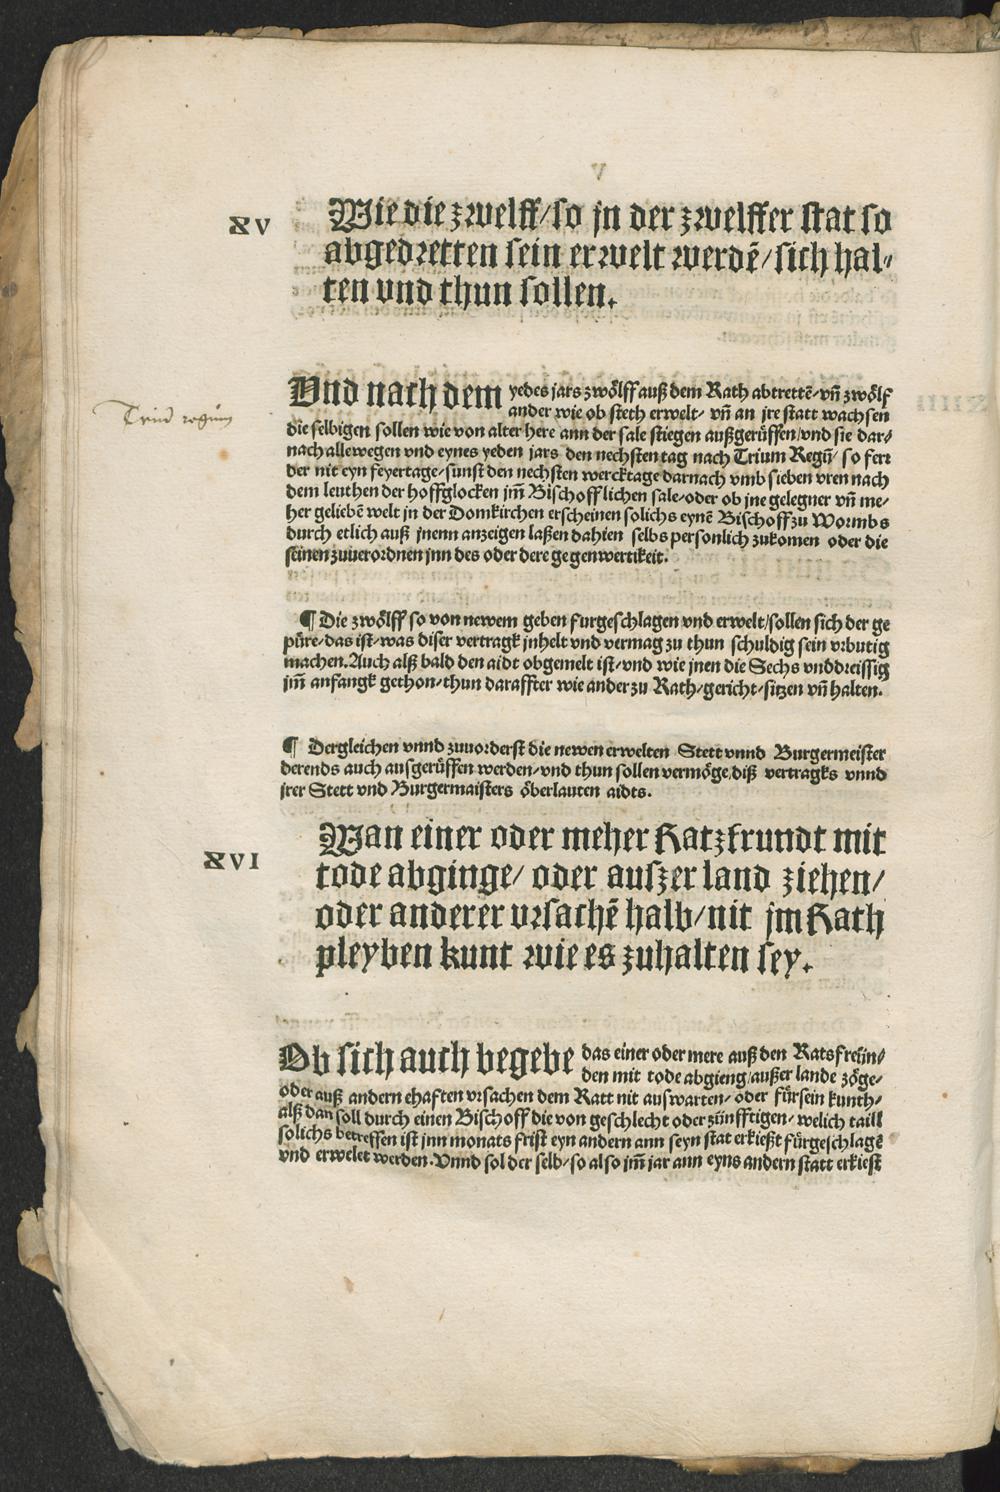 XV
Wie die zwelff/ so jn der zwelffer stat so
abgedretten sein erwelt werdē/ sich hal⸗
ten vnd thun sollen.
Vnd nach dem yedes jars zwölff auß dem Rath abtrettē/ vn̄ zwölf
ander wie ob steth erwelt/ vn̄ an jre statt wachsen
Triū regum
die selbigen sollen wie von alter here ann der sale stiegen außgerüffen/ vnd sie dar⸗
nach allewegen vnd eynes yeden jars den nechsten tag nach Trium Regū/ so ferr
der nit eyn feyertage/ sunst den nechsten wercktage darnach vmb sieben vren nach
dem leuthen der hoffglocken jm̄ Bischofflichen sale/ oder ob jne gelegner vn̄ me⸗
her geliebē welt jn der Domkirchen erscheinen solichs eynē Bischoff zu Wormbs
durch etlich auß jnenn anzeigen laßen dahien selbs personlich zukomen oder die
seinen zuuerordnen jnn des oder dere gegenwertikeit.
¶ Die zwölff so von newem geben furgeschlagen vnd erwelt/ sollen sich der ge
püre/ das ist/ was diser vertragk jnhelt vnd vermag zu thun schuldig sein vrbutig
machen. Auch alß bald den aidt obgemelt ist/ vnd wie jnen die Sechs vnddreissig
jm̄ anfangk gethon/ thun daraffter wie ander zu Rath/ gericht/ sitzen vn̄ halten.
¶ Dergleichen vnnd zuuorderst die newen erwelten Stett vnnd Burgermeister
derends auch ausgerüffen werden/ vnd thun sollen vermöge diß vertragks vnnd
jrer Stett vnd Burgermaisters öberlauten aidts.
XVI
Wan einer oder meher Ratzfrundt mit
tode abginge/ oder auszer land ziehen/
oder anderer vrsachē halb/ nit jm Rath
pleyben kunt wie es zuhalten sey.
Ob sich auch begebe das einer oder mere auß den Ratsfreün⸗
den mit tode abgieng/ außer lande zöge/
oder auß andern ehaften vrsachen dem Ratt nit auswarten/ oder für sein kunth/
alß dan soll durch einen Bischoff die von geschlecht oder zünfftigen/ welich taill
solichs betreffen ist jnn monats frist eyn andern ann seyn stat erkießt fürgeschlagē
vnd erwelet werden. Vnnd sol der selb/ so also jm̄ jar ann eyns andern statt erkiest